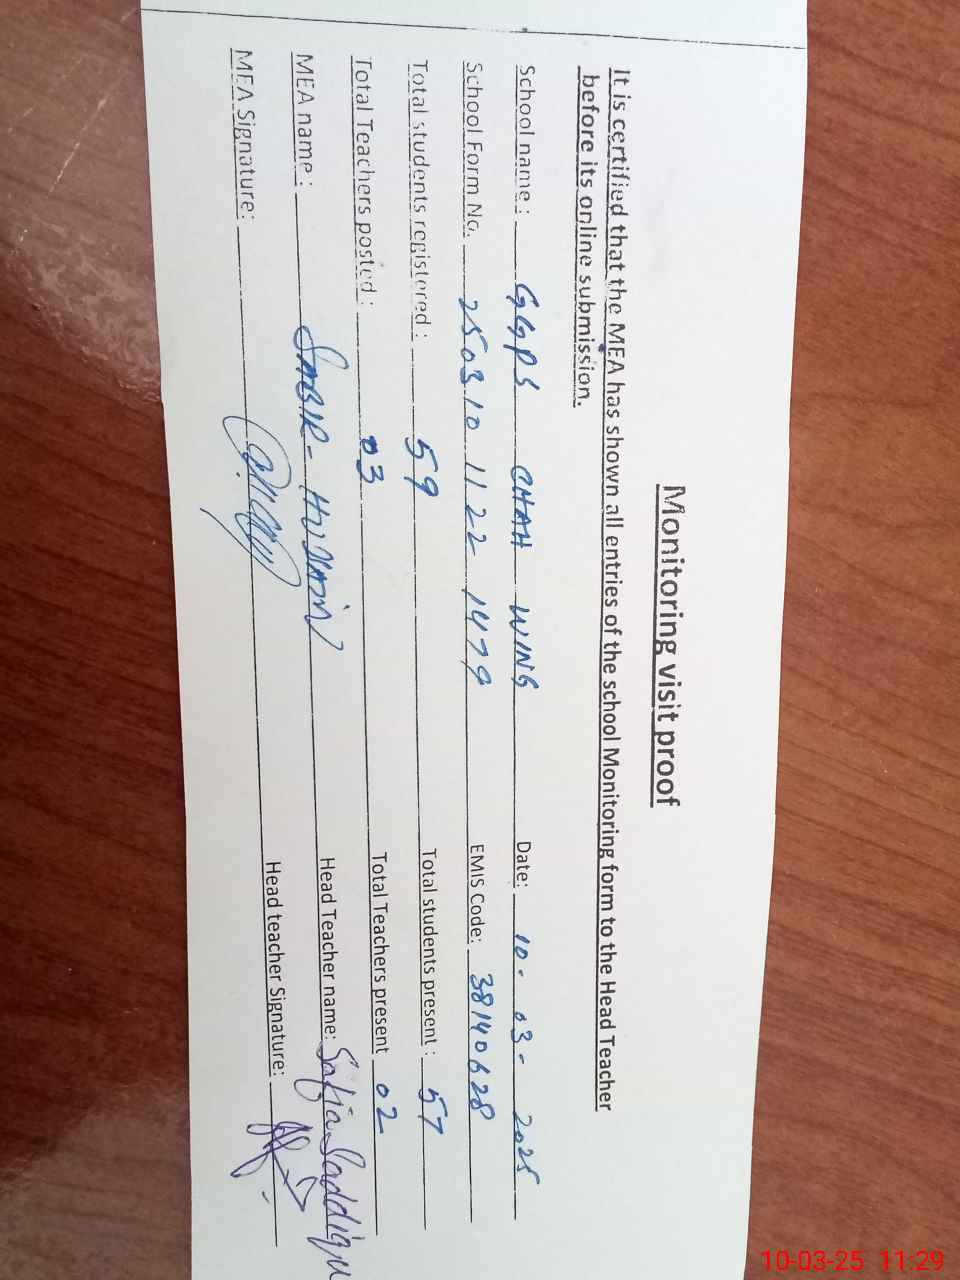 Monitoring visit proof
It is certified that the MEA has shown all entries of the school Monitoring form to the Head Teacher
before its online submission.
School name : GGPS CHAH WING Date: 10-03-2025
School Form No. 250310 1122 1479 EMIS Code: 38140628
Total students registered : 59 Total students present : 57
Total Teachers posted : 03 Total Teachers present 02
MEA name : SABIR-HUSSAIN Head Teacher name: Safia Saddiqu
MEA Signature: Head teacher Signature:
10-03-25 11:29